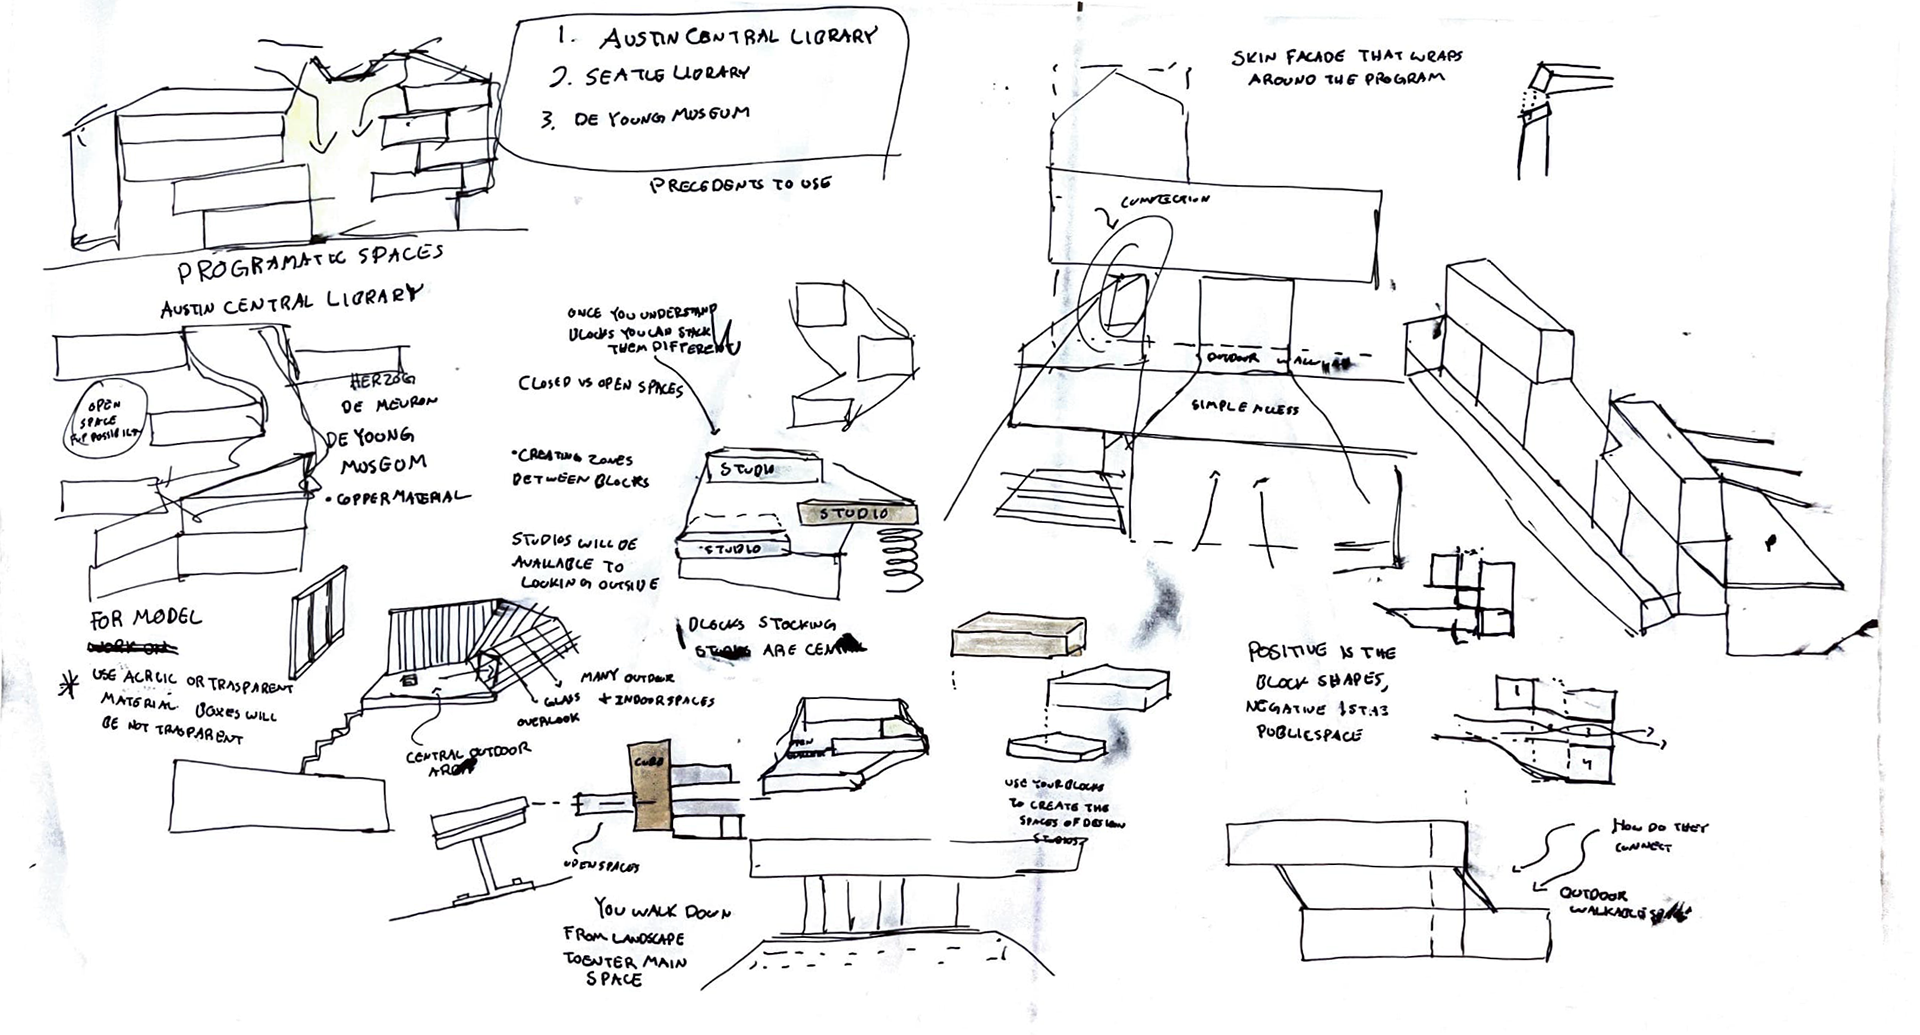 1. AUSTIN CENTRAL LIBRARY
2. SEATLE LIBRARY
3. DE YOUNG MUSEUM
PRECEDENTS TO USE
PROGRAMATIC SPACES
AUSTIN CENTRAL LIBRARY
OPEN
SPACE
HERZOG
DE MEURON
DE YOUNG
MUSEUM
• COPPER MATERIAL
FOR MODEL
WORK ON
* USE ACRLIC OR TRASPARENT
MATERIAL BOXES WILL
BE NOT TRASPARENT
CENTRAL OUTDOOR
AREA
GLASS
OVERLOOK
MANY OUTDOOR
+ INDOOR SPACES
ONCE YOU UNDERSTAND
BLOCKS YOU CAN STACK
THEM DIFFERENTLY
CLOSED VS OPEN SPACES
• CREATING ZONES
BETWEEN BLOCKS
STUDIOS WILL BE
AVAILABLE TO
LOOKING OUTSIDE
STUDIO
STUDIO
STUDIO
BLOCKS STOCKING
ARE
OPEN
CURB
OPEN SPACES
YOU WALK DOWN
FROM LANDSCAPE
TO ENTER MAIN
SPACE
USE YOUR BLOCKS
TO CREATE THE
SPACES OF DESIGN
STUDIOS
SKIN FACADE THAT WRAPS
AROUND THE PROGRAM
CONNECTION
OUTDOOR WALL
SIMPLE ACCESS
P
POSITIVE IS THE
BLOCK SHAPES,
NEGATIVE
PUBLIC SPACE
1
3
4
HOW DO THEY
CONNECT
OUTDOOR
WALKABLE SPACE